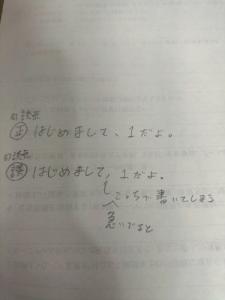 句読点
正 はじめまして、1だよ。
句読点
誤 はじめまして,1だよ.
こっちで書いてしまう
急いでると